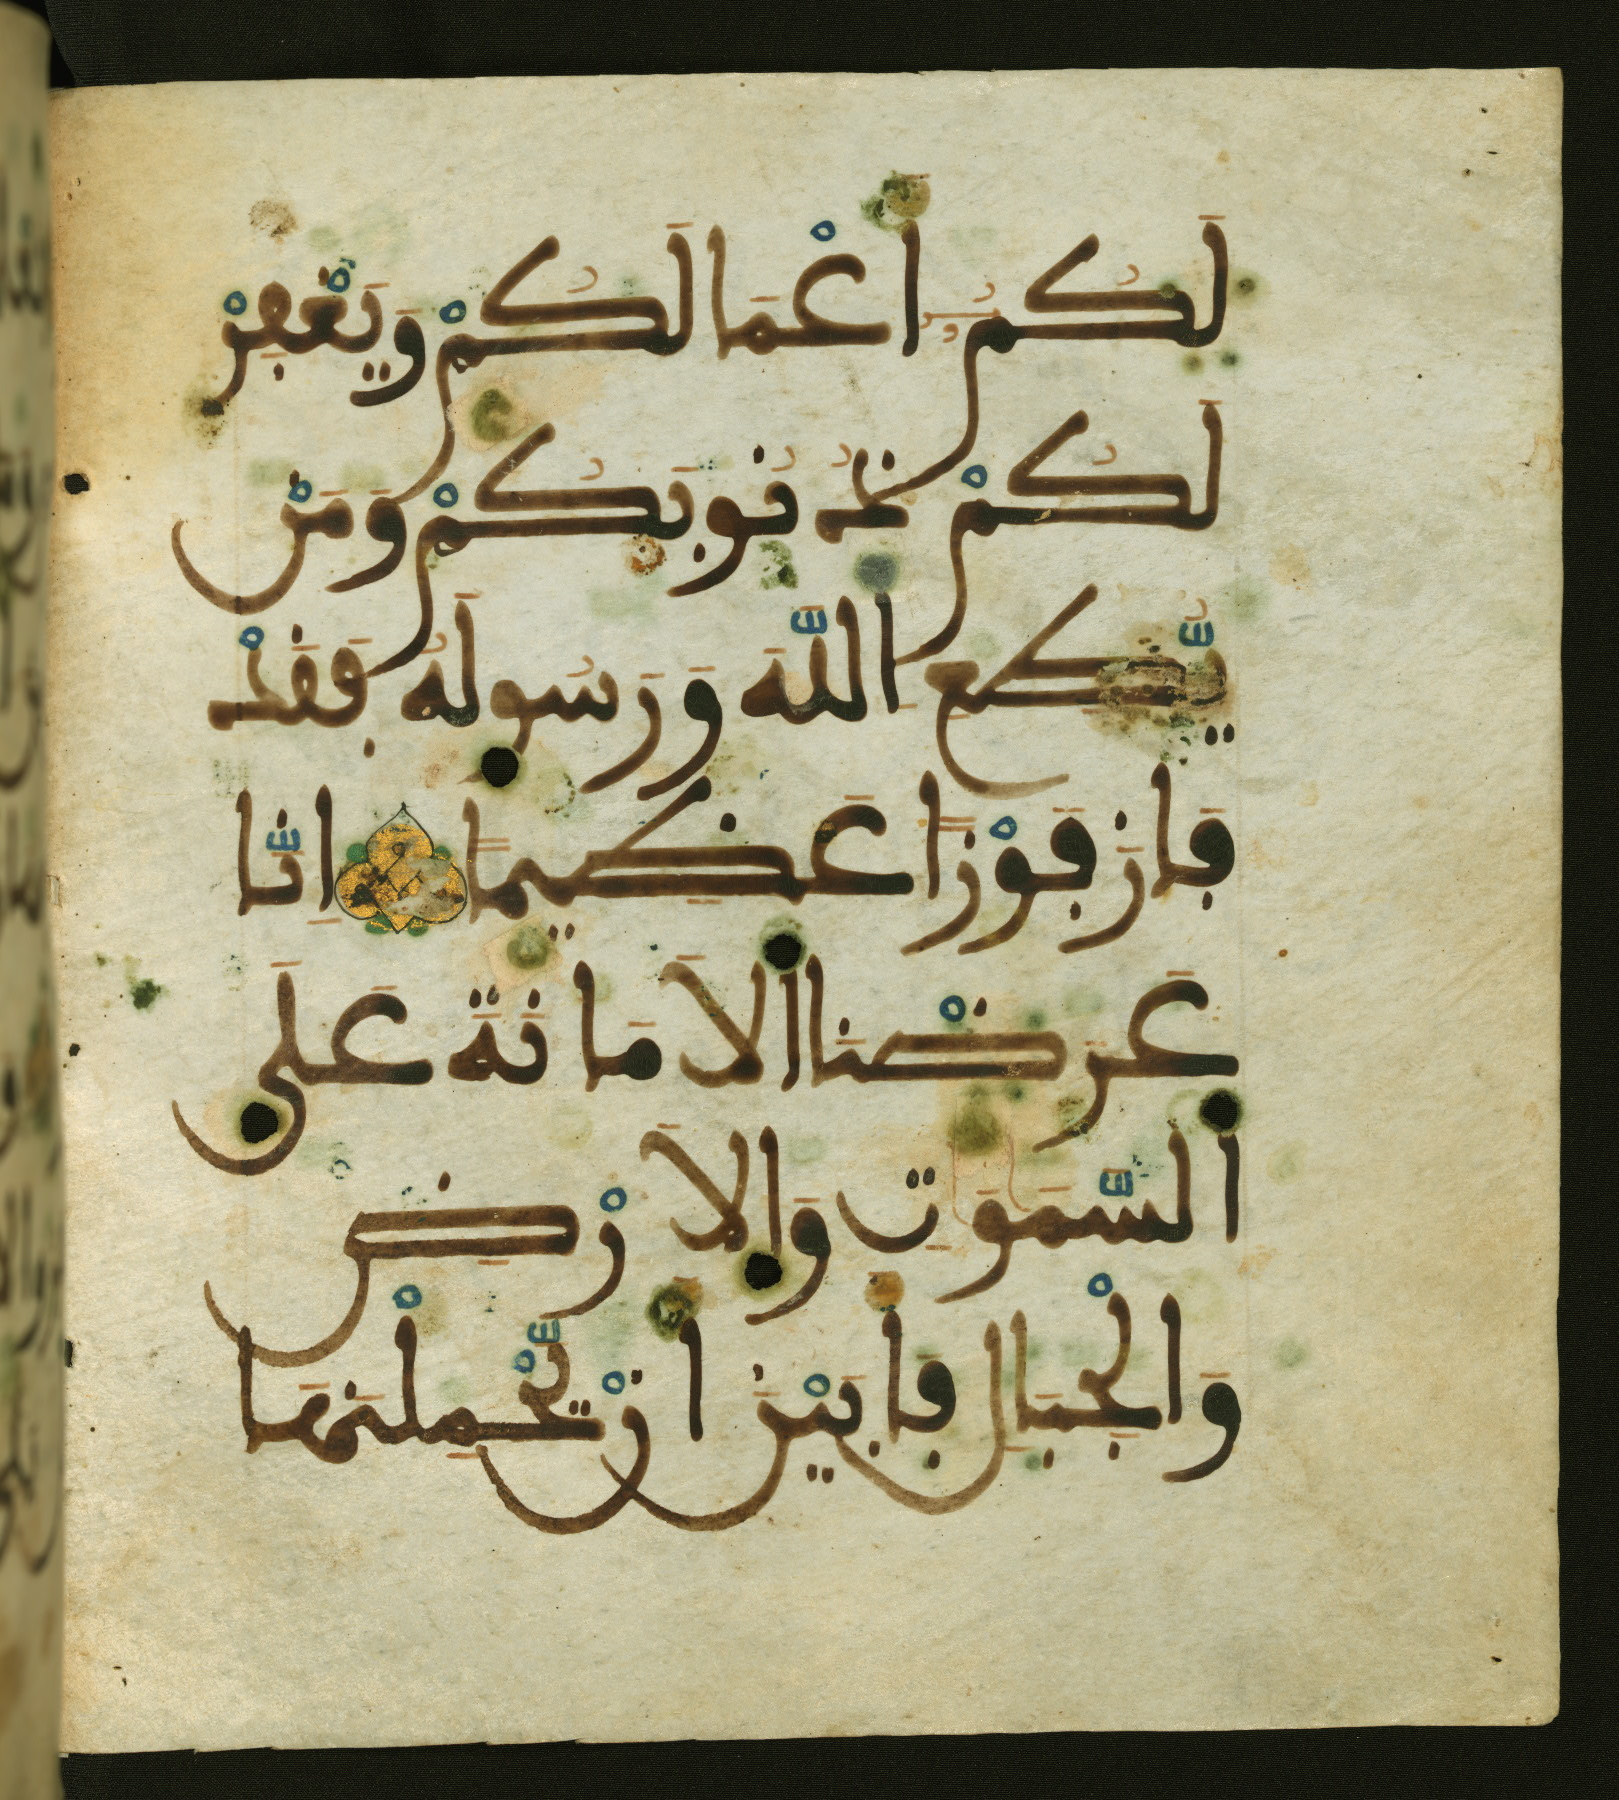 لَكُمُۥٓ أَعْمَالَكُمْ وَيَغْفِرْ
لَكُمْ ذُنُوبَكُمْ وَمَنْ
يُّطِعِ اِللَّهَ وَرَسُولَهُ فَقَدْ
فَازَ فَوْزًا عَظِيمًا اِنَّا
عَرَضْنَا اَلَامَانَةَ عَلَى
اَلسَّمَوَٰتِ وَالَارْضِ
وَالْجِبَالِ فَأَبَيْنَ أَنْ يَّحْمِلْنَهَا